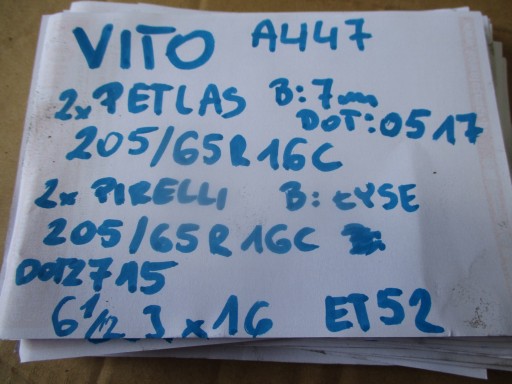 VITO A447
2x PETLAS B: 7mm
DOT: 0517
205/65R16C
2x PIRELLI B: ŁYSE
205/65R16C
DOT2715
6 1/2 J x 16 ET52